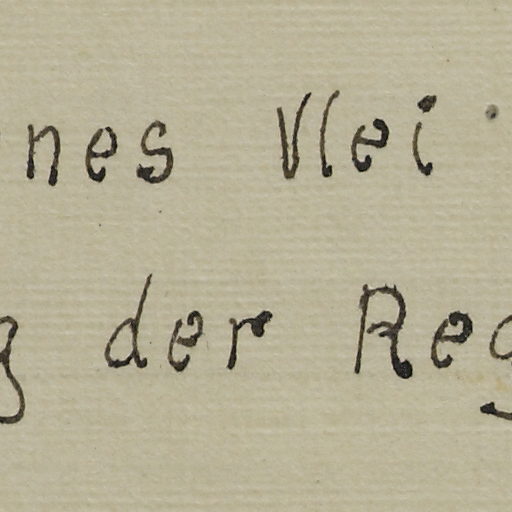 nes Vlei
g der Reg